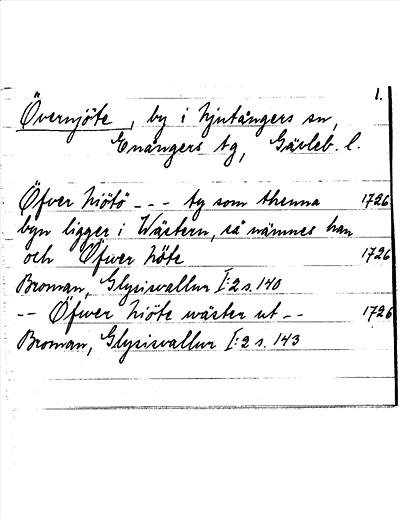 1.
Övernjöte, by i Njutångers sn,
Enångers tg, Gävleb. l.
Öfver Niötö --- ty som thenna 1726
byn ligger i Wästern, så nämnes han
och Öfwer Nöte 1726
Broman, Glysisvallur I:2 s. 140
-- Öfwer Niöte wäster ut -- 1726
Broman, Glysisvallur I:2 s. 143